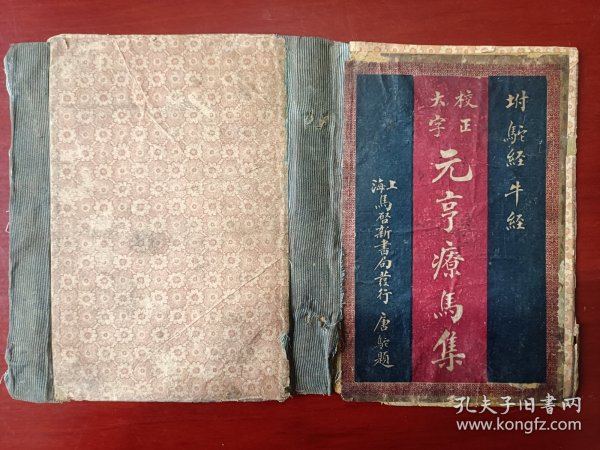 坿駝経牛経
校正
大字
元亨療馬集
上海馬啓新書局發行 唐駝題
孔夫子旧書网
www.kongfz.com